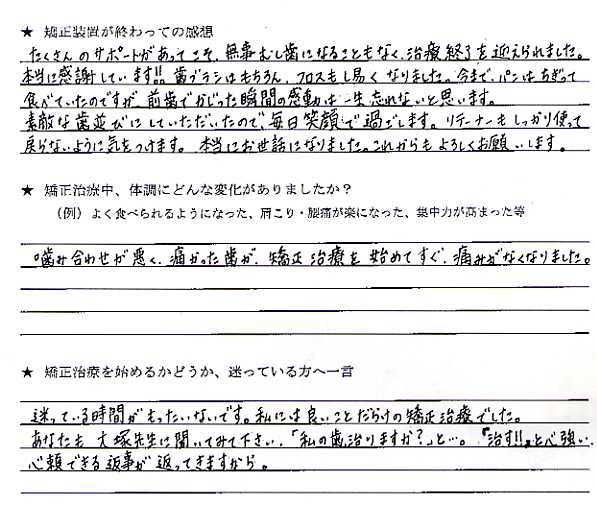 ★ 矯正装置が終わっての感想
たくさんのサポートがあってこそ、無事むし歯になることもなく、治療終了を迎えられました。
本当に感謝しています!! 歯ブラシはもちろん、フロスもし易くなりました。今まで、パンはちぎって
食べていたのですが、前歯でかじった瞬間の感動は一生忘れないと思います。
素敵な歯並びにしていただいたので、毎日笑顔で過ごします。リテーナーもしっかり使って
戻らないように気をつけます。本当にお世話になりました。これからもよろしくお願いします。
★ 矯正治療中、体調にどんな変化がありましたか？
（例）よく食べられるようになった、肩こり・腰痛が楽になった、集中力が高まった等
噛み合わせが悪く、痛かった歯が、矯正治療を始めてすぐ、痛みがなくなりました。
★ 矯正治療を始めるかどうか、迷っている方へ一言
迷っている時間がもったいないです。私には良いことだらけの矯正治療でした。
あなたも大塚先生に聞いてみて下さい、「私の歯治りますか？」と…。『治す!!』と心強い、
心頼できる返事が返ってきますから。